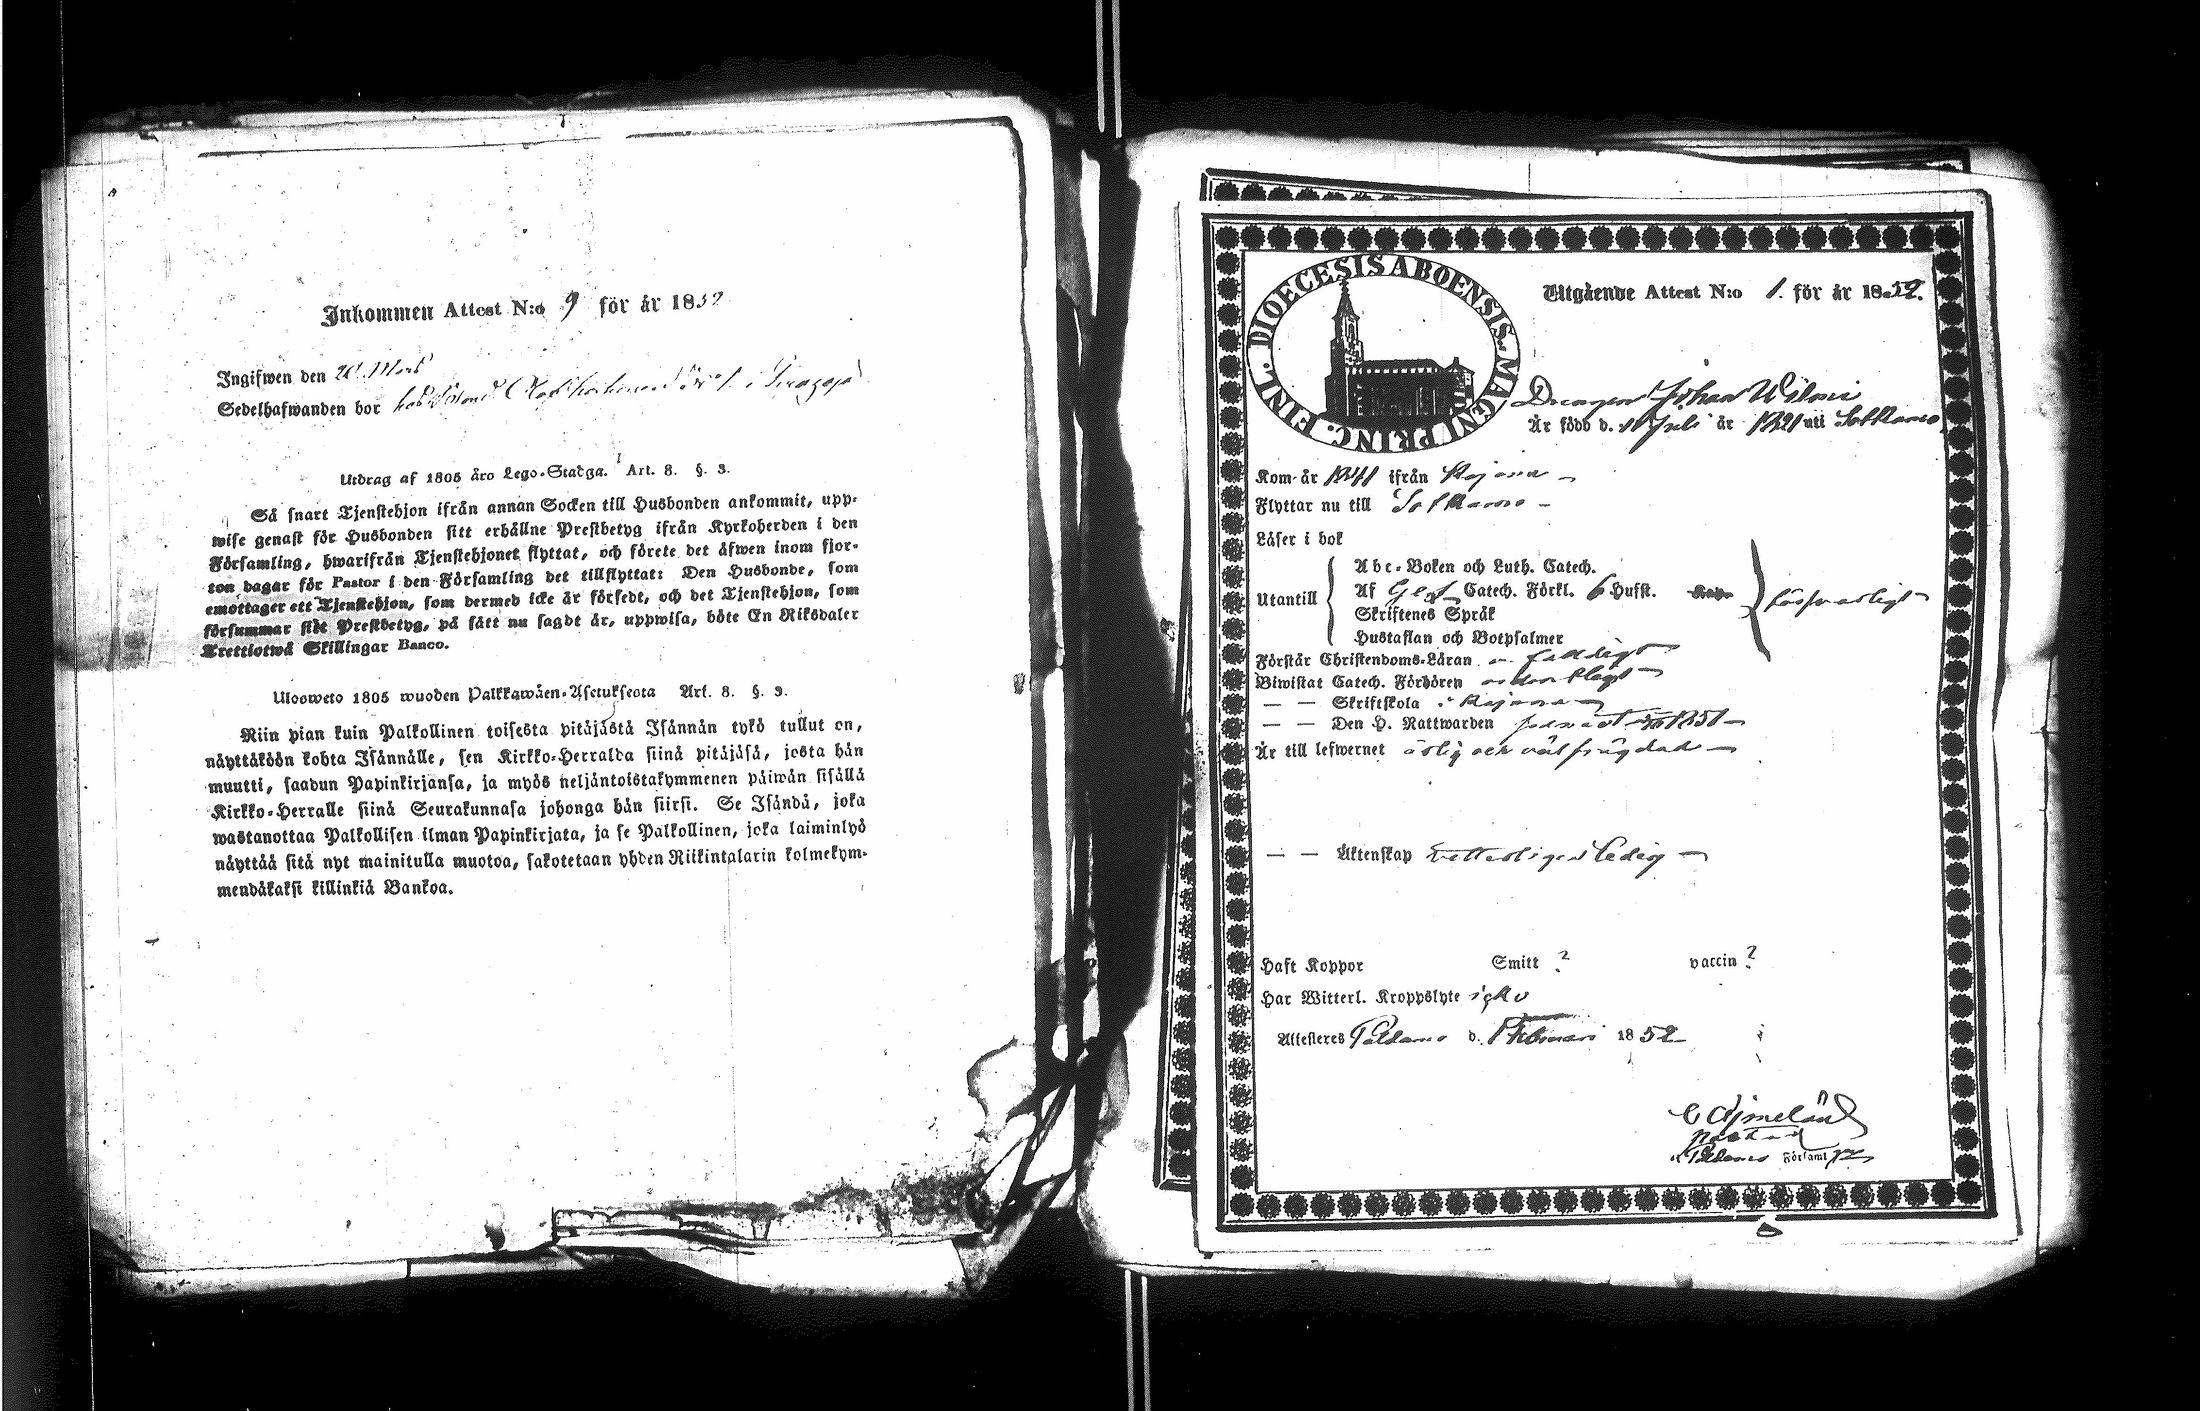 Inkommen Attest N:o 9 för år 1852
Ingifwen den 20 Mars
Sedelhafwanden bor hos i
Utdrag af 1805 års Lego-Stadga. Art. 8. §. 3.
Så snart Tjenstehjon ifrån annan Socken till Husbonden ankommit, upp-
wise genast för Husbonden sitt erhållne Prestbetyg ifrån Kyrkoherden i den
Församling, hwarifrån Tjenstehjonet flyttat, och förete det äfwen inom fjor-
ton dagar för Pastor i den Församling det tillflyttat: Den Husbonde, som
emottager ett Tjenstehjon, som dermed icke är försedt, och det Tjenstehjon, som
försummar sitt Prestbetyg, på sätt nu sagdt är, uppwisa, böte En Riksdaler
Trettiotwå Skillingar Banco.
Ulosweto 1805 wuoden Palkkawäen-Asetuksesta Art. 8. §. 3.
Niin pian kuin Palkollinen toisesta pitäjästä Isännän tykö tullut on,
näyttäköön kohta Isännälle, sen Kirkko-Herralda siinä pitäjäsä, josta hän
muutti, saadun Papinkirjansa, ja myös neljäntoistakymmenen päiwän sisällä
Kirkko-Herralle siinä Seurakunnasa johonga hän siirsi. Se Isändä, joka
wastanottaa Palkollisen ilman Papinkirjata, ja se Palkollinen, joka laiminlyö
näyttää sitä nyt mainitulla muotoa, sakotetaan yhden Riikintalarin kolmekym-
mendäkaksi killinkiä Bankoa.
DIOECESIS ABOENSIS. MAGNI PRINC. FINL.
Utgående Attest N:o 1. för år 1852.
Drengen Johan Wilmi
Är född d. Juli år 1821 uti Sotkamo
Kom år 1841 ifrån Kajana
Flyttar nu till Sotkamo
Läser i bok
Abc-Boken och Luth. Catech.
Utantill Af Catech. Förkl. 6 Hufst. försvarligt
Skriftenes Språk
Hustaflan och Botpsalmer
Förstår Christendoms-Läran
Biwistat Catech. Förhören ordentligt
— — Skriftskola i Kajana
— — Den H. Nattwarden 1851
Är till lefwernet ärlig och väl frägdad
— — Äktenskap vetterligen ledig
Haft Koppor Smitt ? vaccin ?
Har Witterl. Kroppslyte icke
Attesteres Paldamo d. Februari 1852
C Ajmelä
Pastor
i Paldamo Församl.